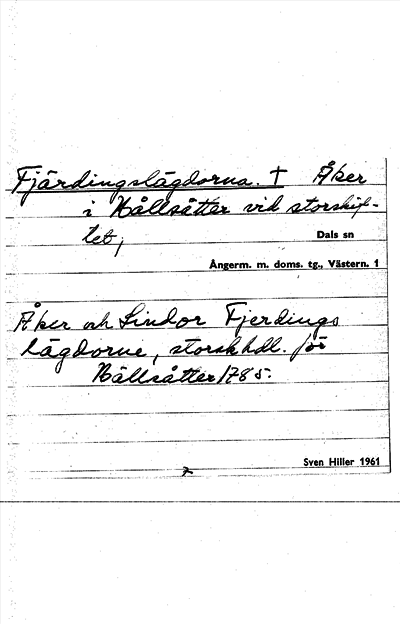 Fjärdingslägdorna. † Åker
i Hållsätter vid storskif-
tet;
Dals sn
Ångerm. m. doms. tg., Västern. 1
Åker och Lindor Fjerdings
lägdorne, storsk hdl. för
Hållsätter 1785.
Sven Hiller 1961